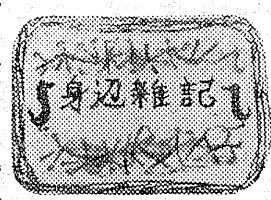 身辺雑記